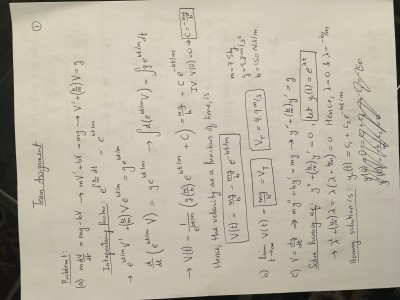 ①
Team Assignment
Problem 1:
(a) m dV/dt = mg - bV → mV' + bV = mg → V' + (b/m)V = g
Integrating factor: e^∫(b/m)dt = e^bt/m
→ e^bt/m V' + (b/m) V e^bt/m = g e^bt/m
d/dt (e^bt/m V) = g e^bt/m → ∫ d(e^bt/m V) = ∫ g e^bt/m dt
→ V(t) = 1/e^bt/m (g (m/b) e^bt/m + C) = mg/b + C e^-bt/m
IV: V(0) = 0 → C = -mg/b
Hence, the velocity as a function of time, is
V(t) = mg/b - mg/b e^-bt/m
m = 75 kg
g = 9.8 m/s²
b = 150 N·s/m
b) lim t→∞ V(t) = mg/b = V_T
V_T = 4.9 m/s
c) V = dy/dt → my'' + by' = mg → y'' + (b/m) y' = g
Solve homog eq: y'' + (b/m) y' = 0, let y(t) = e^λt
→ λ² + (b/m)λ = λ(λ + b/m) = 0 Hence, λ = 0 & λ = -b/m
Homog solution is: y(t) = C₁ + C₂ e^-bt/m